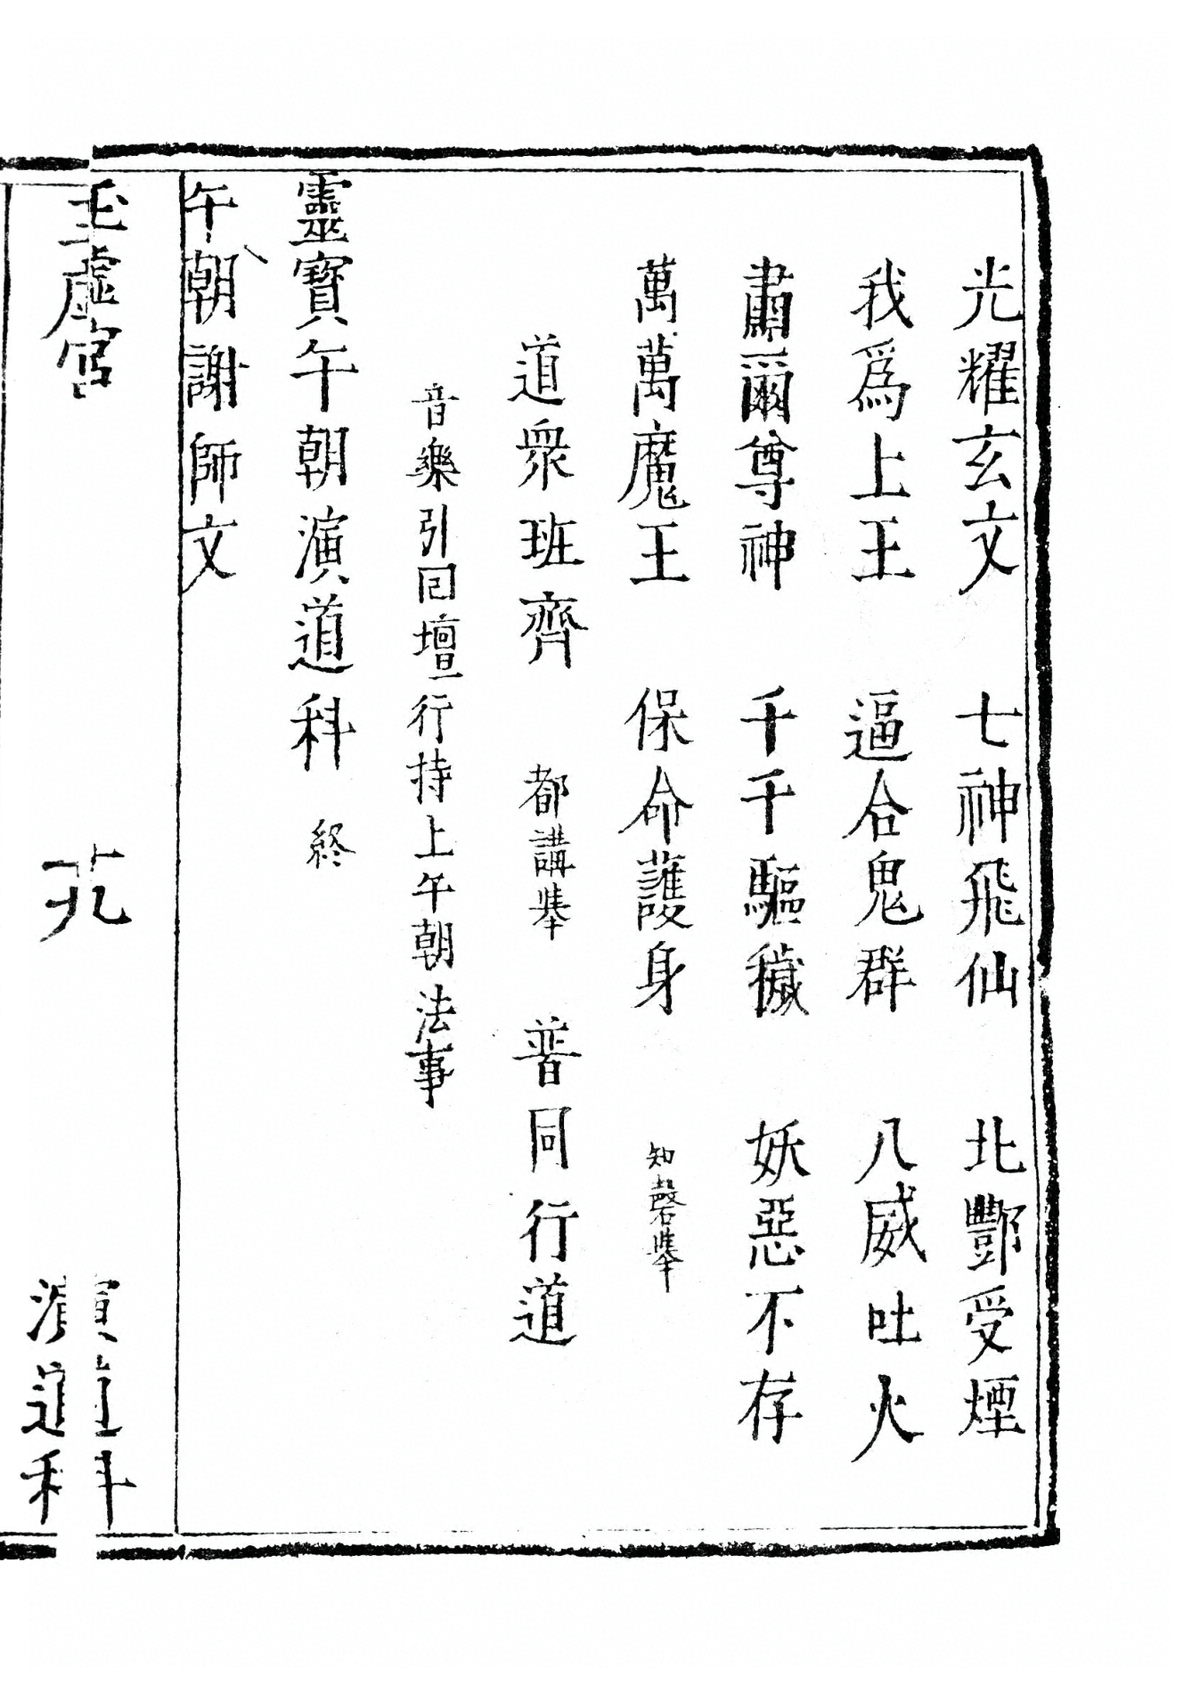 光耀玄文　七神飛仙　北酆受煙
我爲上王　逼合鬼群　八威吐火
肅爾尊神　千千驅穢　妖惡不存
萬萬魔王　保命護身　知磬舉
道衆班齊　都講舉　普同行道
音樂引回壇行持上午朝法事
靈寶午朝演道科　終
午朝謝師文
玉虛宮　廿九　演道科